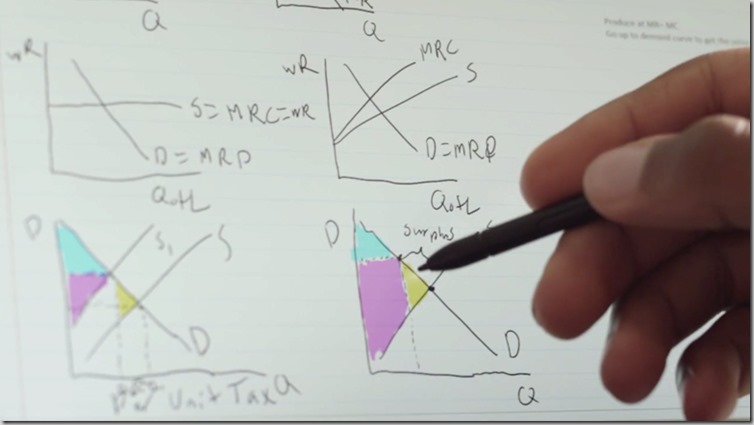 Q
Q
Produce at MR= MC
Go up to demand curve to get the
WR
S= MRC=WR
D = MRP
QofL
WR
MRC
S
D=MRP
QofL
D
S1
S
D
Unit Tax
Q
D
surplus
D
Q